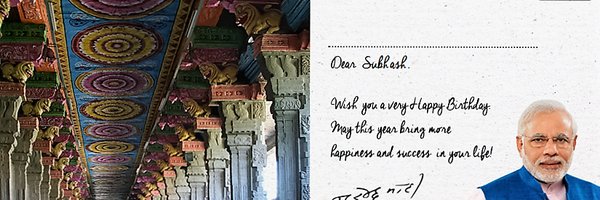 Dear Subhash.
Wish you a very Happy Birthday.
May this year bring more
happiness and success in your life!